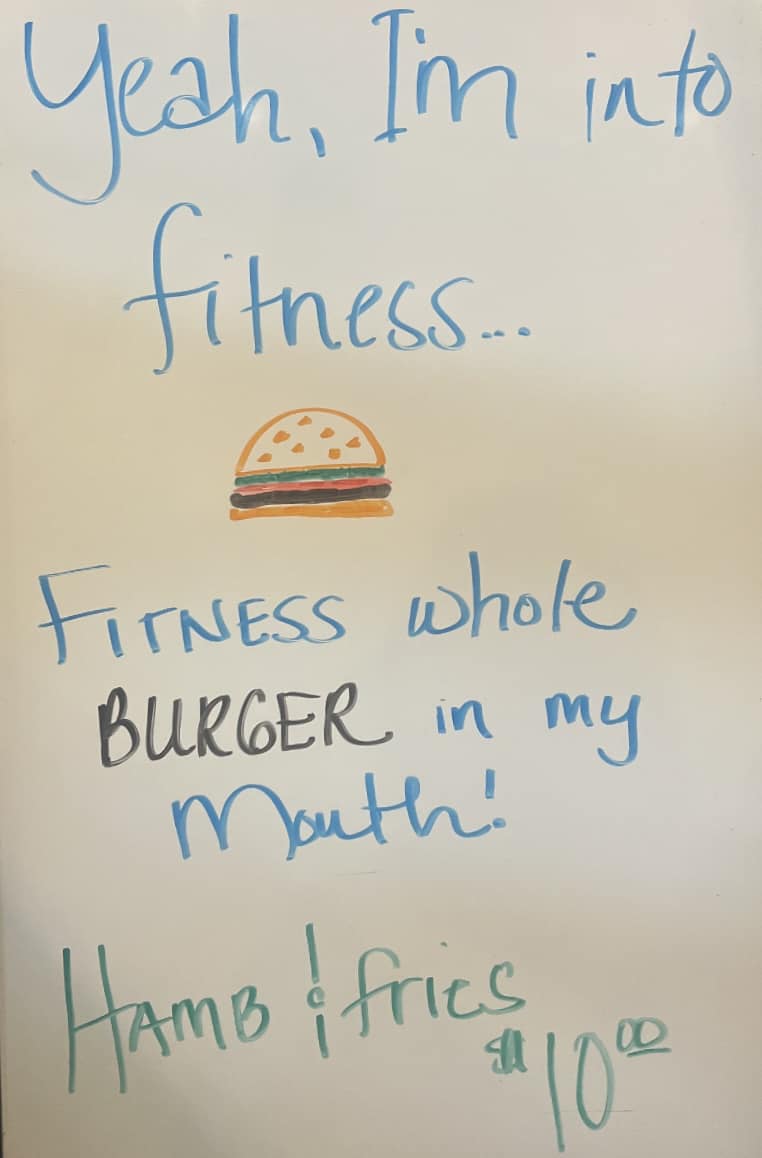 Yeah, I'm into
fitness...
FITNESS whole
BURGER in my
Mouth!
HAMB & fries
$10.00